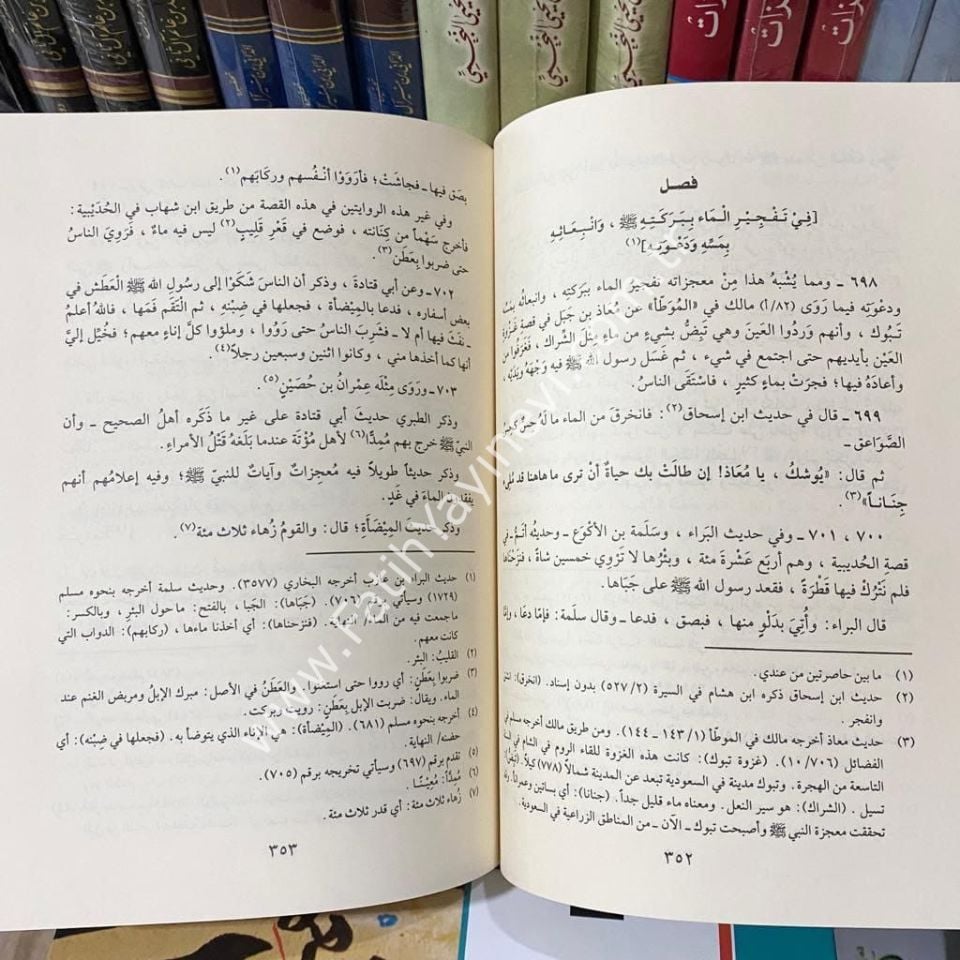 فصل
[فِيْ تَفْجِيْرِ الْمَاءِ بِبَرَكَتِهِ ﷺ ، وَانْبِعَاثِهِ
بِمَسِّهِ وَدَعْوَتِهِ](١)
٦٩٨ ـ ومما يُشْبِهُ هذا مِنْ معجزاته تفجيرُ الماء ببَرَكتِهِ ، وانبعاثُه بمَسِّهِ
ودعْوَتِهِ فيما رَوَى (٨٢/أ) مالك في «المُوَطَّأ» عن مُعاذ بن جَبَل في قصة غَزْوَةِ
تَبوك ، وأنهم وَرَدُوا العَينَ وهي تَبِضُّ بشيءٍ من ماءٍ مِثْلِ الشِّراك ، فَغَرَفُوا من
العَيْن بأيديهم حتى اجتمع في شيء ، ثم غَسَل رسول الله ﷺ فيه وَجْهَهُ ويَدَيْهِ ،
وأعادَهُ فيها؛ فجرَتْ بماءٍ كثيرٍ ، فاسْتَقَى الناسُ.
٦٩٩ ـ قال في حديث ابن إسحاق(٢): فانخرقَ من الماء ما لَهُ حِسٌّ كحِسِّ
الصَّوَاعق ـ
ثم قال: «يُوشكُ ، يا مُعَاذ! إن طالَتْ بك حياةٌ أنْ ترى ما هاهنا قد مُلِىءَ
جِنَاناً»(٣).
٧٠٠ ، ٧٠١ ـ وفي حديث البَراء ، وسَلَمة بن الأكْوَع ـ وحديثُه أتَمُّ ـ في
قصة الحُديبية ، وهم أربَع عَشْرَةَ مئة ، وبِئْرُها لا تَرْوِي خمسين شاةً ، فنَزَحْناها
فلم نَتْرُكْ فيها قَطْرَةً ، فقعد رسول الله ﷺ على جَبَاها.
قال البراء: وأُتِيَ بدَلْوٍ منها ، فبصق ، فدعا ـ وقال سلَمة: فإمّا دعَا ، وإمّا
(١) ما بين حاصرتين من عندي.
(٢) حديث ابن إسحاق ذكره ابن هشام في السيرة (٢/ ٥٢٧) بدون إسناد. (انخرق):
وانفجر.
(٣) حديث معاذ أخرجه مالك في الموطّأ (١/ ١٤٣ ـ ١٤٤). ومن طريق مالك أخرجه مسلم في
الفضائل (٧٠٦/ ١٠). (غزوة تبوك): كانت هذه الغزوة للقاء الروم في الشام في
التاسعة من الهجرة. وتبوك مدينة في السعودية تبعد عن المدينة شمالاً (٧٧٨) كيلاً. (تَبِضُّ):
تسيل. (الشراك): هو سير النعل. ومعناه ماء قليل جداً. (جنانا): أي بساتين وعمراناً.
تحققت معجزة النبي ﷺ وأصبحت تبوك ـ الآن ـ من المناطق الزراعية في السعودية.
٣٥٢
بصَق فيها ـ فجاشَتْ؛ فأرْوَوْا أنْفُسهم وركابَهم(١).
وفي غير هذه الروايتين في هذه القصة من طريق ابن شهاب في الحُدَيْبية:
فأخرج سَهْماً من كِنَانته ، فوضع في قَعْرِ قَليبٍ(٢) ليس فيه ماءٌ ، فَرَوِيَ الناسُ
حتى ضربوا بِعَطَنٍ(٣).
٧٠٢ ـ وعن أبي قتادة ، وذكر أن الناسَ شَكَوْا إلى رسولِ الله ﷺ الْعَطَش في
بعض أسفاره ، فدعا بالمِيْضأة ، فجعلها في ضِبْنِهِ ، ثم الْتَقَم فَمَها ، فاللهُ أعلمُ
ـ نَفَثَ فيها أم لا ـ فشَرِبَ الناسُ حتى رَوُوا ، وملؤوا كلَّ إناءٍ معهم؛ فخُيِّل إليَّ
أنها كما أخذها مني ، وكانوا اثنين وسبعين رجلاً(٤).
٧٠٣ ـ ورَوَى مِثْلَه عِمْرانُ بن حُصَيْنٍ(٥).
وذكر الطبري حديثَ أبي قتادة على غير ما ذَكَره أهلُ الصحيح ـ وأن
النبيَّ ﷺ خرج بهم مُمِدًّا(٦) لأهل مُؤْتَة عندما بَلَغَهُ قَتْلُ الأمراءِ.
وذكر حديثاً طويلاً فيه مُعجزاتٌ وآياتٌ للنبي ﷺ؛ وفيه إعلامُهم أنهم
يفقدون الماءَ في غَدٍ.
وذكر حديثَ المِيْضَأَة؛ قال: والقومُ زُهاء ثلاث مئة(٧).
(١) حديث البراء بن عازب أخرجه البخاري (٣٥٧٧). وحديث سلمة أخرجه بنحوه مسلم
(١٧٢٩) وسيأتي برقم (٧٠٦). (جَبَاها): الجَبا ، بالفتح: ما حول البئر ، وبالكسر:
ما جمعت فيه من الماء/ النهاية. (فنزحناها): أي أخذنا ماءها ، (ركابهم): الدواب التي
كانت معهم.
(٢) القليبُ: البِئر.
(٣) ضربوا بِعَطَنٍ: أي رووا حتى استغنوا. والعَطَنُ في الأصل: مبرك الإبلُ ومربض الغنم عند
الماء. ويقال: ضربت الإبل بِعَطَنٍ: رويت وبركت.
(٤) أخرجه بنحوه مسلم (٦٨١). (المِيْضأة): هي الإناء الذي يتوضأ به. (فجعلها في ضِبْنِه): أي
حضنه/ النهاية.
(٥) تقدم برقم (٦٩٧) وسيأتي تخريجه برقم (٧٠٥).
(٦) مُمِدًّا: مُعِيْناً.
(٧) زُهاء ثلاث مئة: أي قدر ثلاث مئة.
٣٥٣
www.FatihYayinevi.com.tr